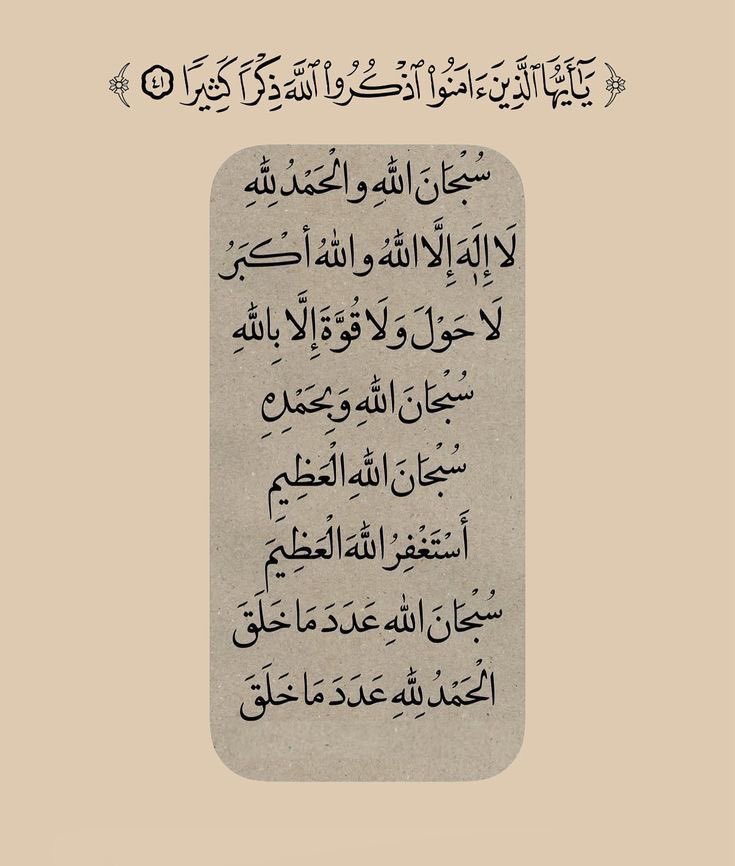 ﴿ يَٰٓأَيُّهَا ٱلَّذِينَ ءَامَنُوا۟ ٱذْكُرُوا۟ ٱللَّهَ ذِكْرًا كَثِيرًا ٤١ ﴾
سُبْحَانَ اللهِ والْحَمْدُ لِلّٰهِ
لَا إِلَهَ إِلَّا اللهُ واللهُ أكْبَرُ
لَا حَوْلَ وَلَا قُوَّةَ إِلَّا بِاللهِ
سُبْحَانَ اللهِ وَبِحَمْدِهِ
سُبْحَانَ اللهِ الْعَظِيمِ
أَسْتَغْفِرُ اللهَ الْعَظِيمَ
سُبْحَانَ اللهِ عَدَدَ مَا خَلَقَ
الْحَمْدُ لِلّٰهِ عَدَدَ مَا خَلَقَ